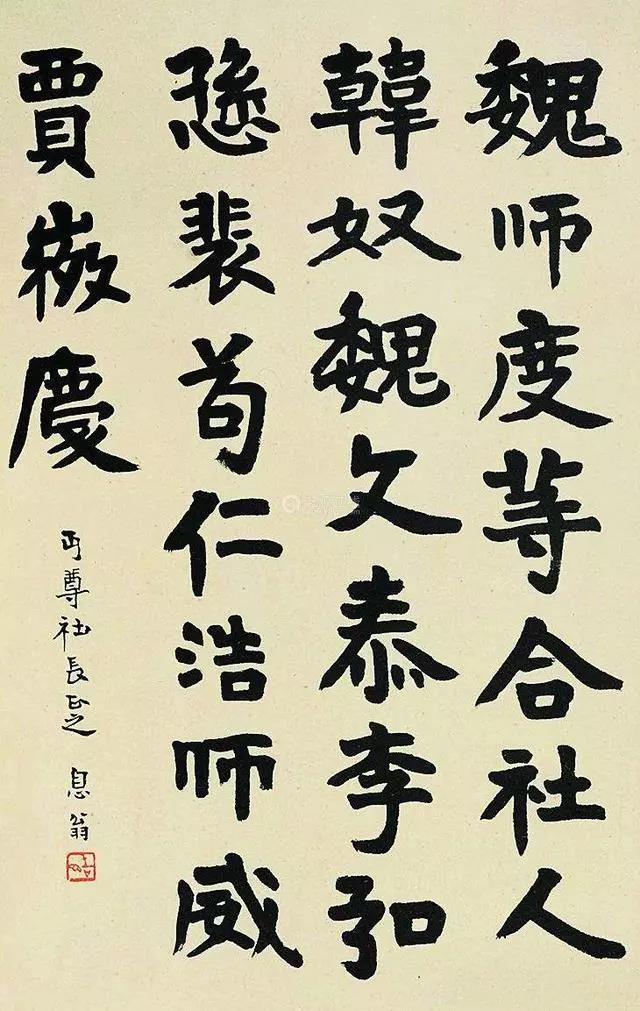 魏师度等合社人
韓奴魏文恭李弘
愻裴苟仁浩师威
賈慶
丏尊社長正之 息翁